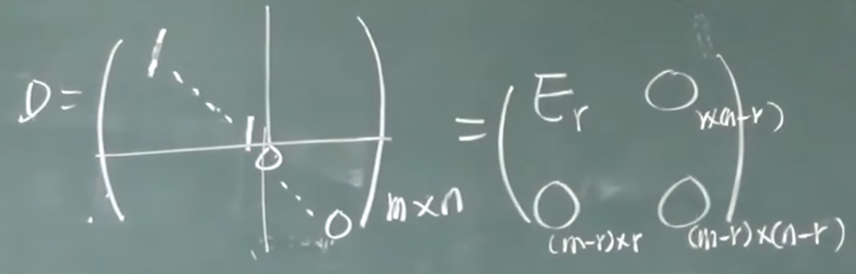 D = ( 1 ⋱ 1 0 ⋱ 0 )m×n = ( Er Or×(n-r)
O(m-r)×r O(m-r)×(n-r) )